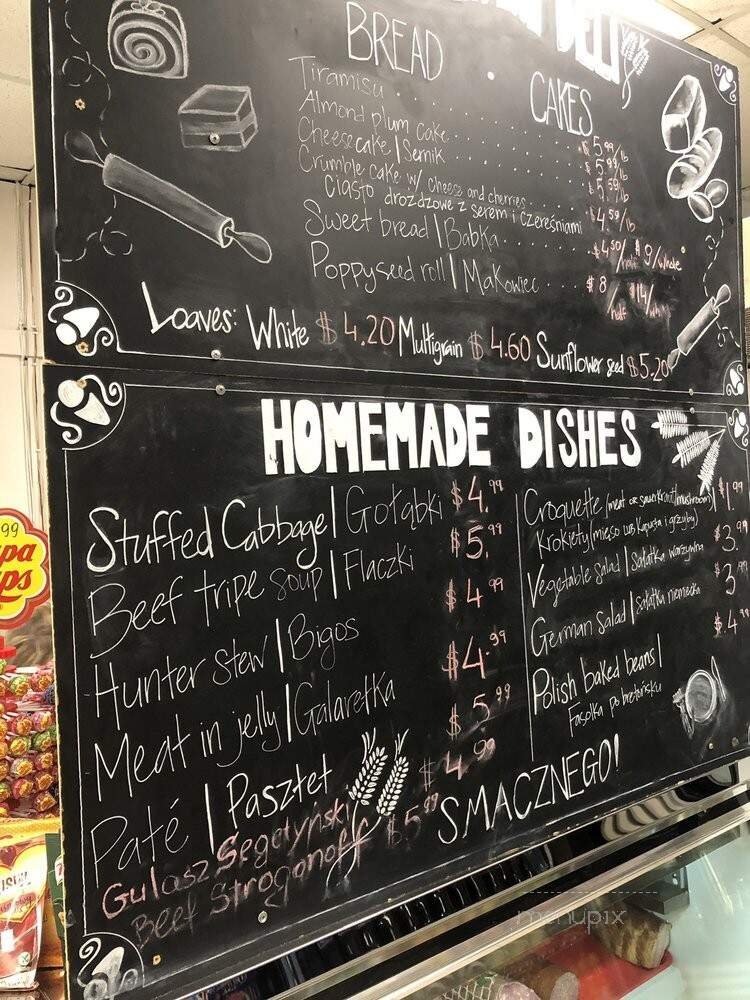 DELI
BREAD
CAKES
Tiramisu $5.99/lb
Almond plum cake $5.99/lb
Cheesecake | Sernik $5.59/lb
Crumble cake w/ cheese and cherries
Ciasto drożdżowe z serem i czereśniami $4.59/lb
Sweet bread | Babka $4.50/half $9/whole
Poppyseed roll | Makowiec $8/half $14/whole
Loaves: White $4.20 Multigrain $4.60 Sunflower seed $5.20
HOMEMADE DISHES
Stuffed Cabbage | Gołąbki $4.99
Beef tripe soup | Flaczki $5.99
Hunter stew | Bigos $4.99
Meat in jelly | Galaretka $4.99
Paté | Pasztet $5.99
Gulasz Segedyński $4.99
Beef Stroganoff $5.99
Croquette (meat or sauerkraut/mushroom) $1.99
Krokiety (mięso lub kapusta i grzyby)
Vegetable salad | Sałatka warzywna $3.99
German salad | Sałatka niemiecka $3.99
Polish baked beans | $4.99
Fasolka po bretońsku
SMACZNEGO!
.99
menupix